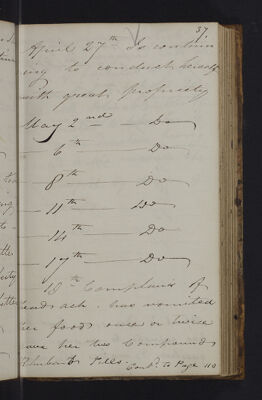 37
April 27th Is continu
ing to conduct herself
with great propriety
May 2nd — Do
— 6th — Do
— 8th — Do
— 11th — Do
— 14th — Do
— 17th — Do
— 19th Complains of
head ach. has vomited
her food once or twice
gave her two Compound
Rhubarb Pills.
Contd. to Page 110